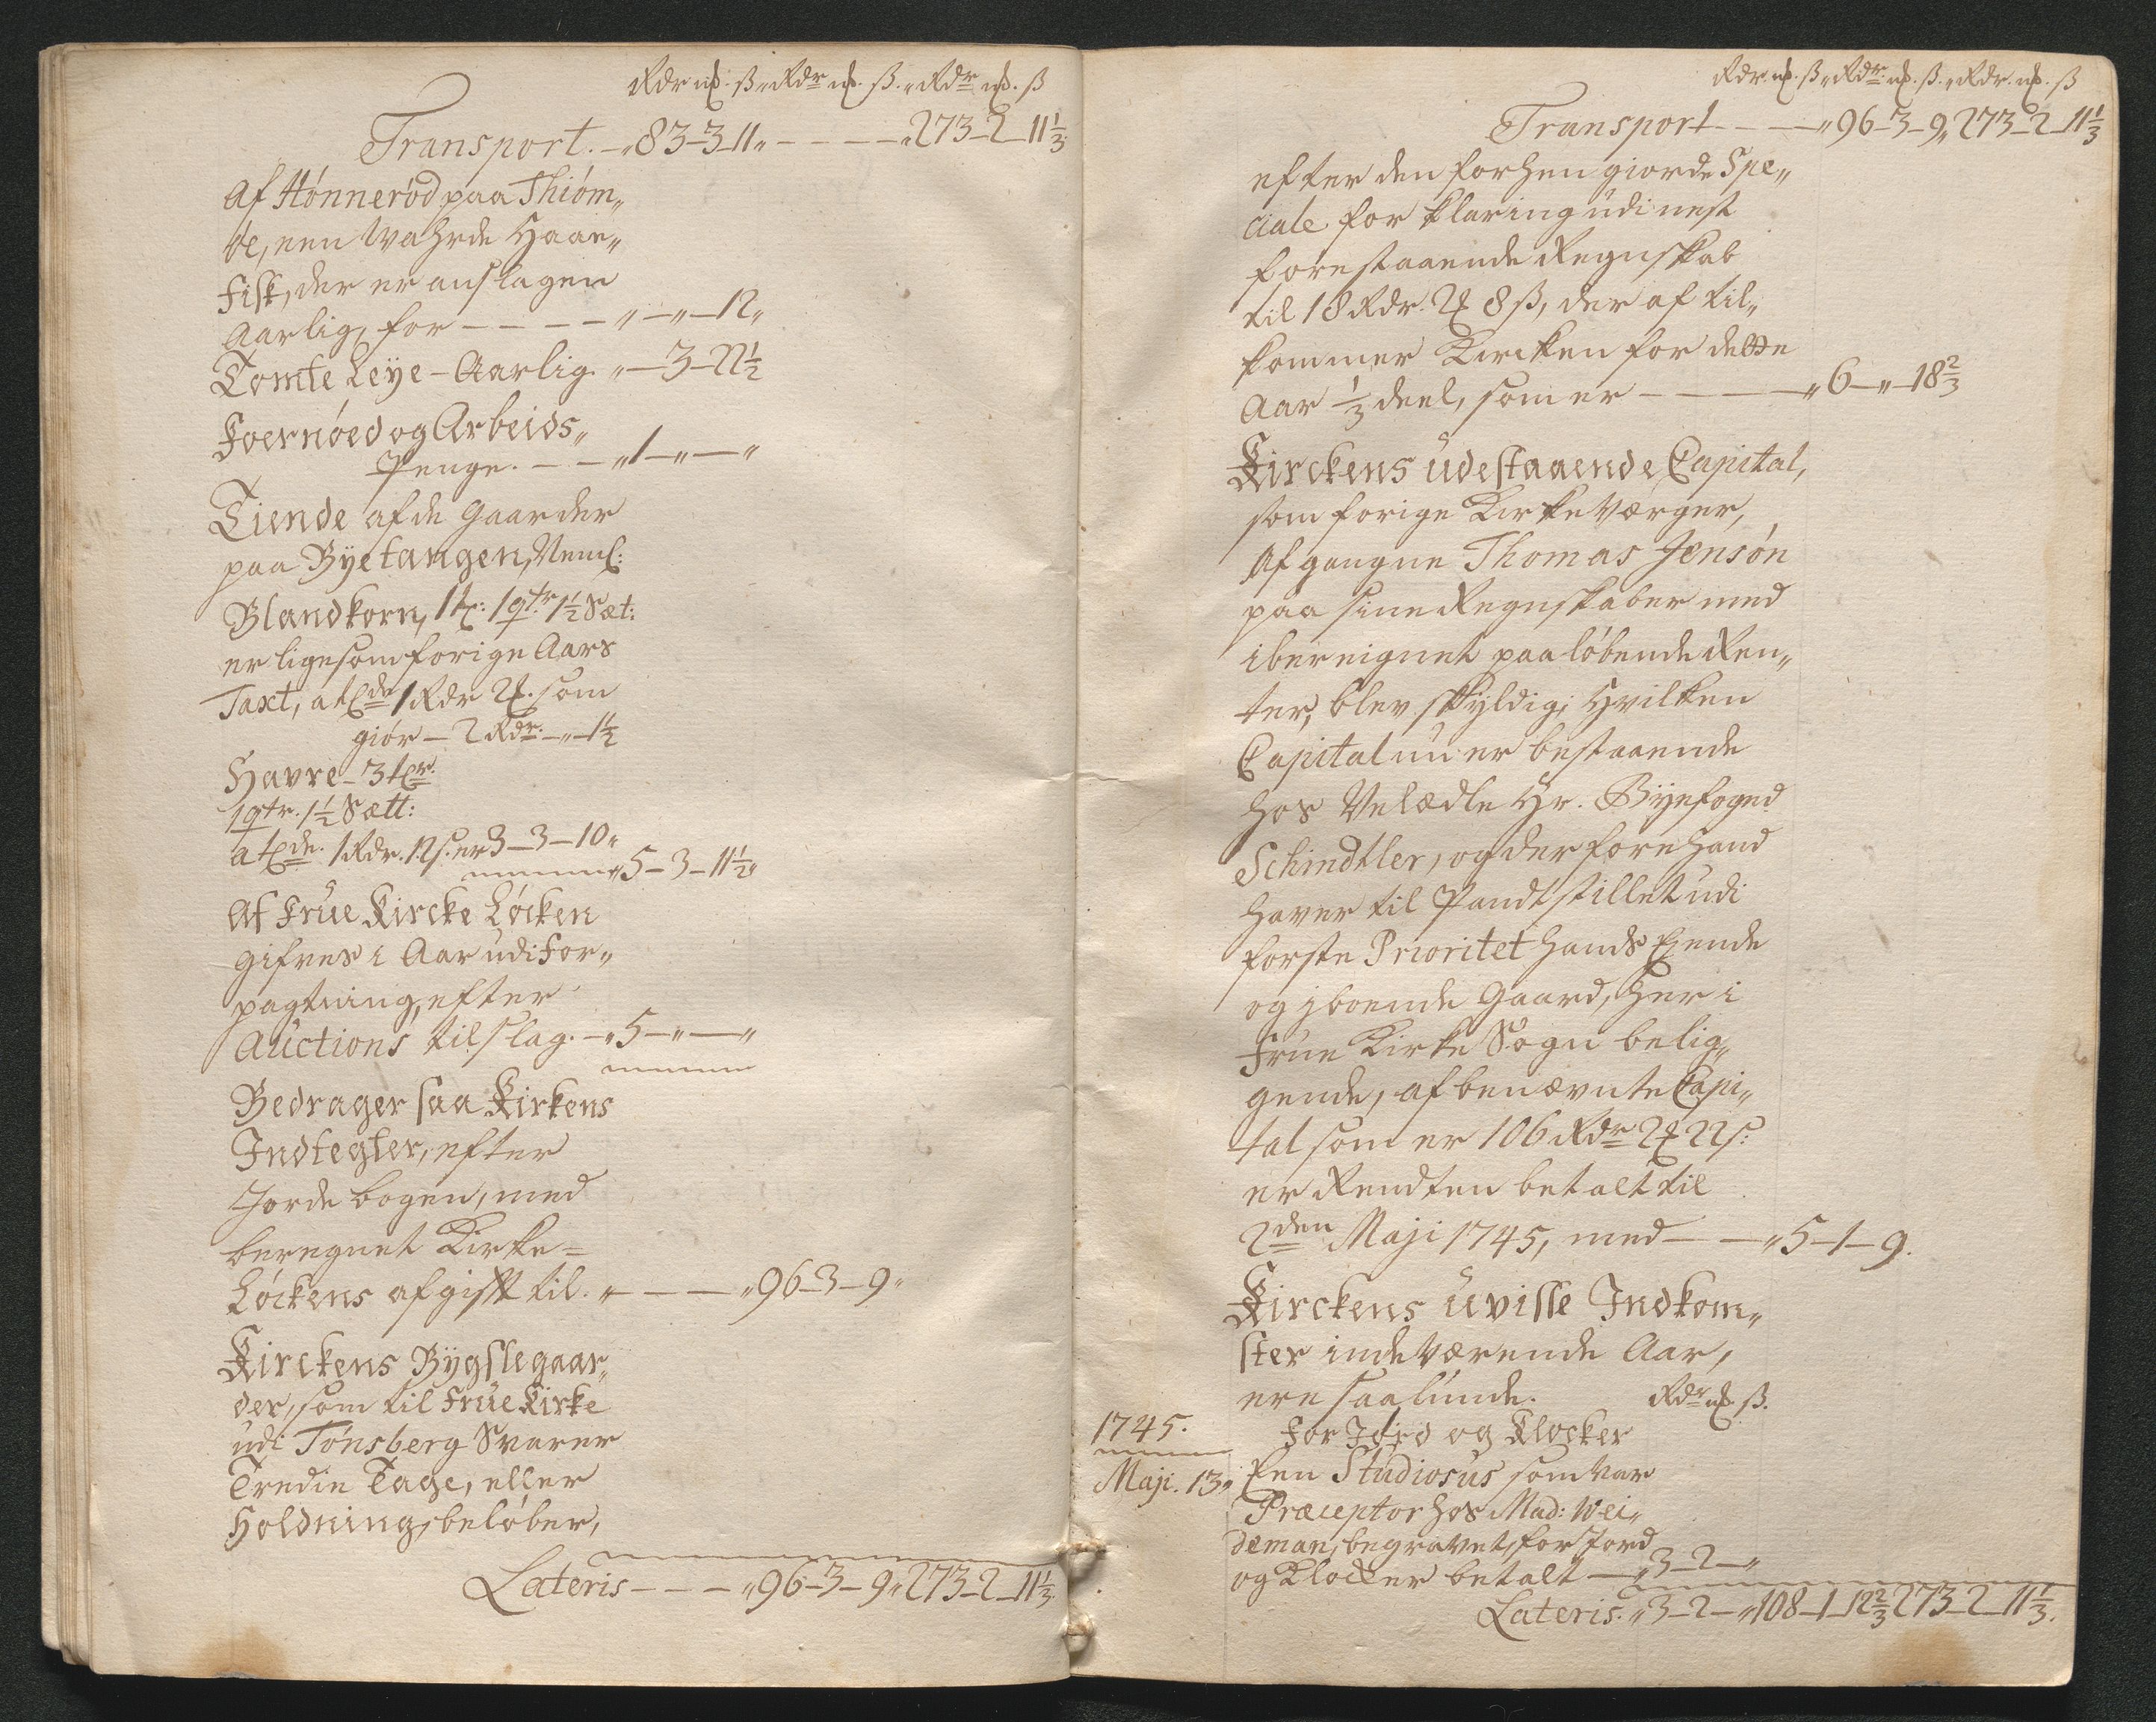 Rdr mk. ß „ Rdr mk. ß. „ Rdr mk. ß
Transport. – „ 83–3–11 „ – – – – – „ 273–2–11 1/3
Af Hønnerød paa Thiøm„
øe, een Wahrde Haae„
Fisk, der er anslagen
Aarlig, for – – – – – „ – „ – 12 „
Tomte Leÿe – Aarlig. „ – 3–22 1/2
Foernøed og Arbeids„
Penge. – – „ 1 – „ – „
Tiende af de Gaarder
paa Bÿetangen, Neml:
Blandkorn, 1 t: 1 qtr 1 1/2 Sæt:
er ligesom forige Aars
Taxt, a tde 1 Rdr 2 mk. som
giør – 2 Rdr. – „ – 1 1/2
Havre – 3 tr.
1 qtr. 1 1/2 Sætt:
a tde. 1 Rdr. 12 s. er 3–3–10 „
„ 5–3–11 1/2 „
Af Frue Kircke Løcken
gifves i Aar udi For„
pagtning, efter
Auctions tilslag. – „ 5 – „ – „
Bedrager saa Kirkens
Indtegter, efter
Jordebogen, med
beregnet Kirke=
Løckens afgift til. „ – – – „ 96–3–9 „
Kirckens Bÿgslegaar„
der, som til Frue Kirke
udi Tønsberg Svarer
Tredie Tage, eller
Holdning, beløber,
Lateris – – – „ 96–3–9 „ 273–2–11 1/3.
Rdr. mk. ß „ Rdr. mk. ß. „ Rdr. mk. ß
Transport – – – „ 96–3–9 „ 273–2–11 1/3
efter den forhen giorde Spe„
ciale forklaring udi nest
forestaaende Regnskab
til 18 Rdr. 2 mk 8 ß, der af til„
kommer Kircken for dette
Aar 1/3 deel, som er – – – – – „ 6 – „ – 18 2/3
Kirckens udestaaende Capital,
som forige Kirkeværger,
Afgangne Thomas Jensøn
paa sine Regnskaber med
ibereignet paaløbende Ren„
ter, blev skÿldig; Hvilken
Capital nu er bestaaende
hos Velædle Hr. Bÿefoged
Schindtler, og derfore hand
haver til Pandt stillet udi
første Prioritet hands Eÿende
og jboende Gaard, her i
Frue Kirke Sogn belig„
gende, af benævnte Capi„
tal som er 106 Rdr 2 mk 22 s:
er Rendten betalt til
2den Maji 1745, med – – „ 5–1–9.
Kirckens uvisse Indkom„
ster indeværende Aar,
ere saalunde. Rdr mk ß.
1745. For Jord og Klocker
Maji. 13 „ Een Studiosus som var
Præceptor hos Mad: Wei„
deman, begravet, for Jord
og Klocker betalt – „ 3–2 – „
Lateris. „ 3–2 – „ 108–1–12 2/3 273–2–11 1/3.